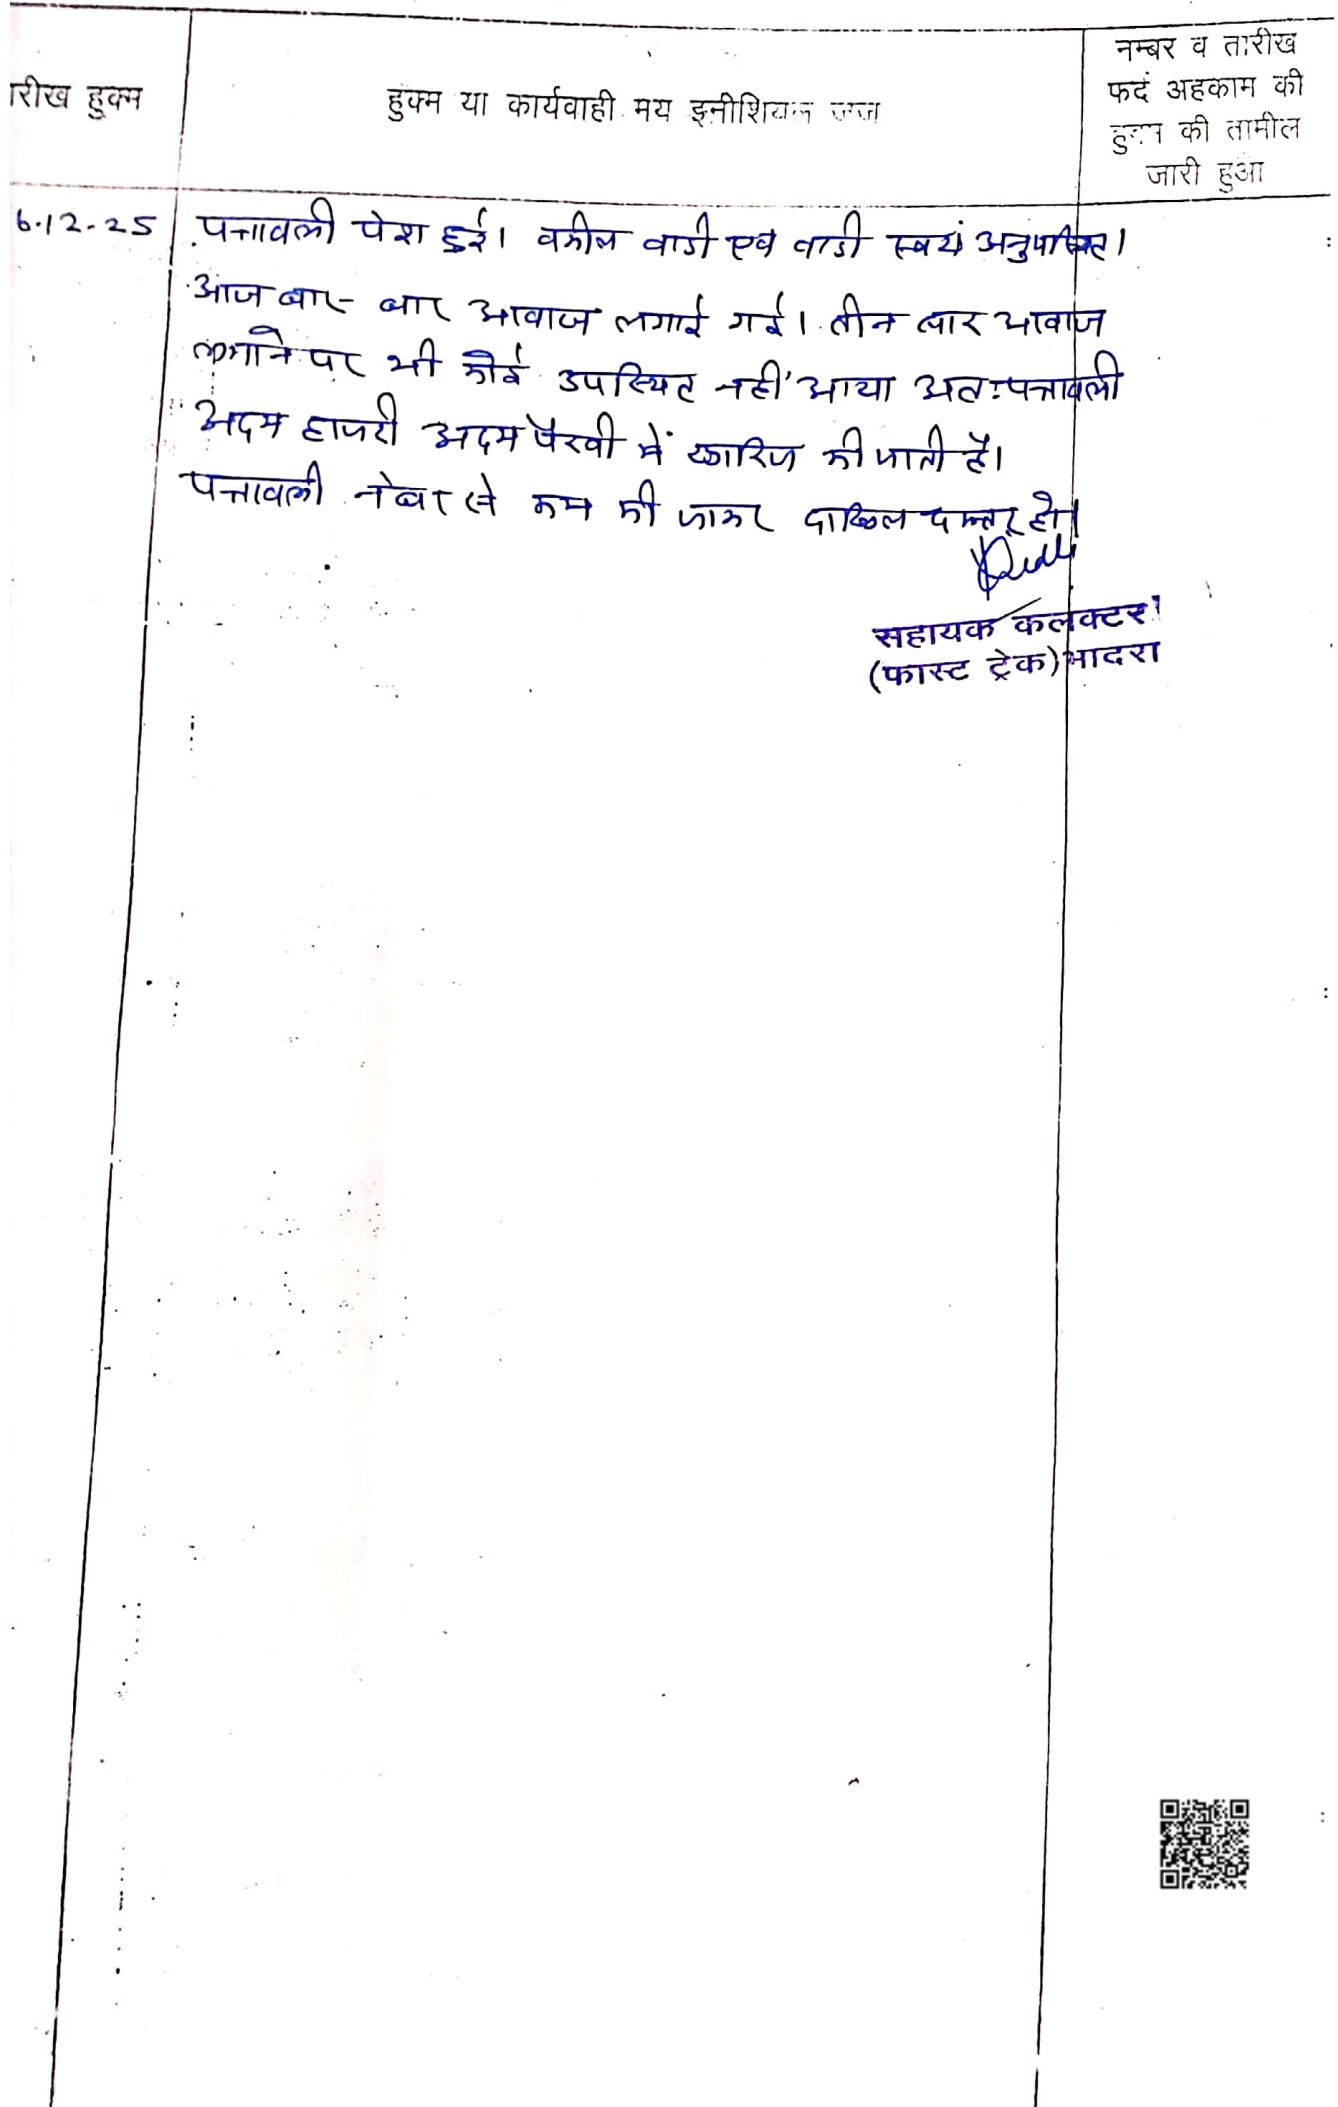 रीख हुक्म
हुक्म या कार्यवाही मय इनीशियल जज
नम्बर व तारीख
फर्द अहकाम की
हुक्म की तामील
जारी हुआ
6.12.25
पत्रावली पेश हुई। वकील वादी एवं वादी स्वयं अनुपस्थित।
आज बार-बार आवाज लगाई गई। तीन बार आवाज
लगाने पर भी कोई उपस्थित नहीं आया अतः पत्रावली
अदम हाजरी अदम पैरवी में खारिज की जाती है।
पत्रावली नंबर से कम की जाकर दाखिल दफ्तर हो।
सहायक कलक्टर
(फास्ट ट्रेक) भादरा